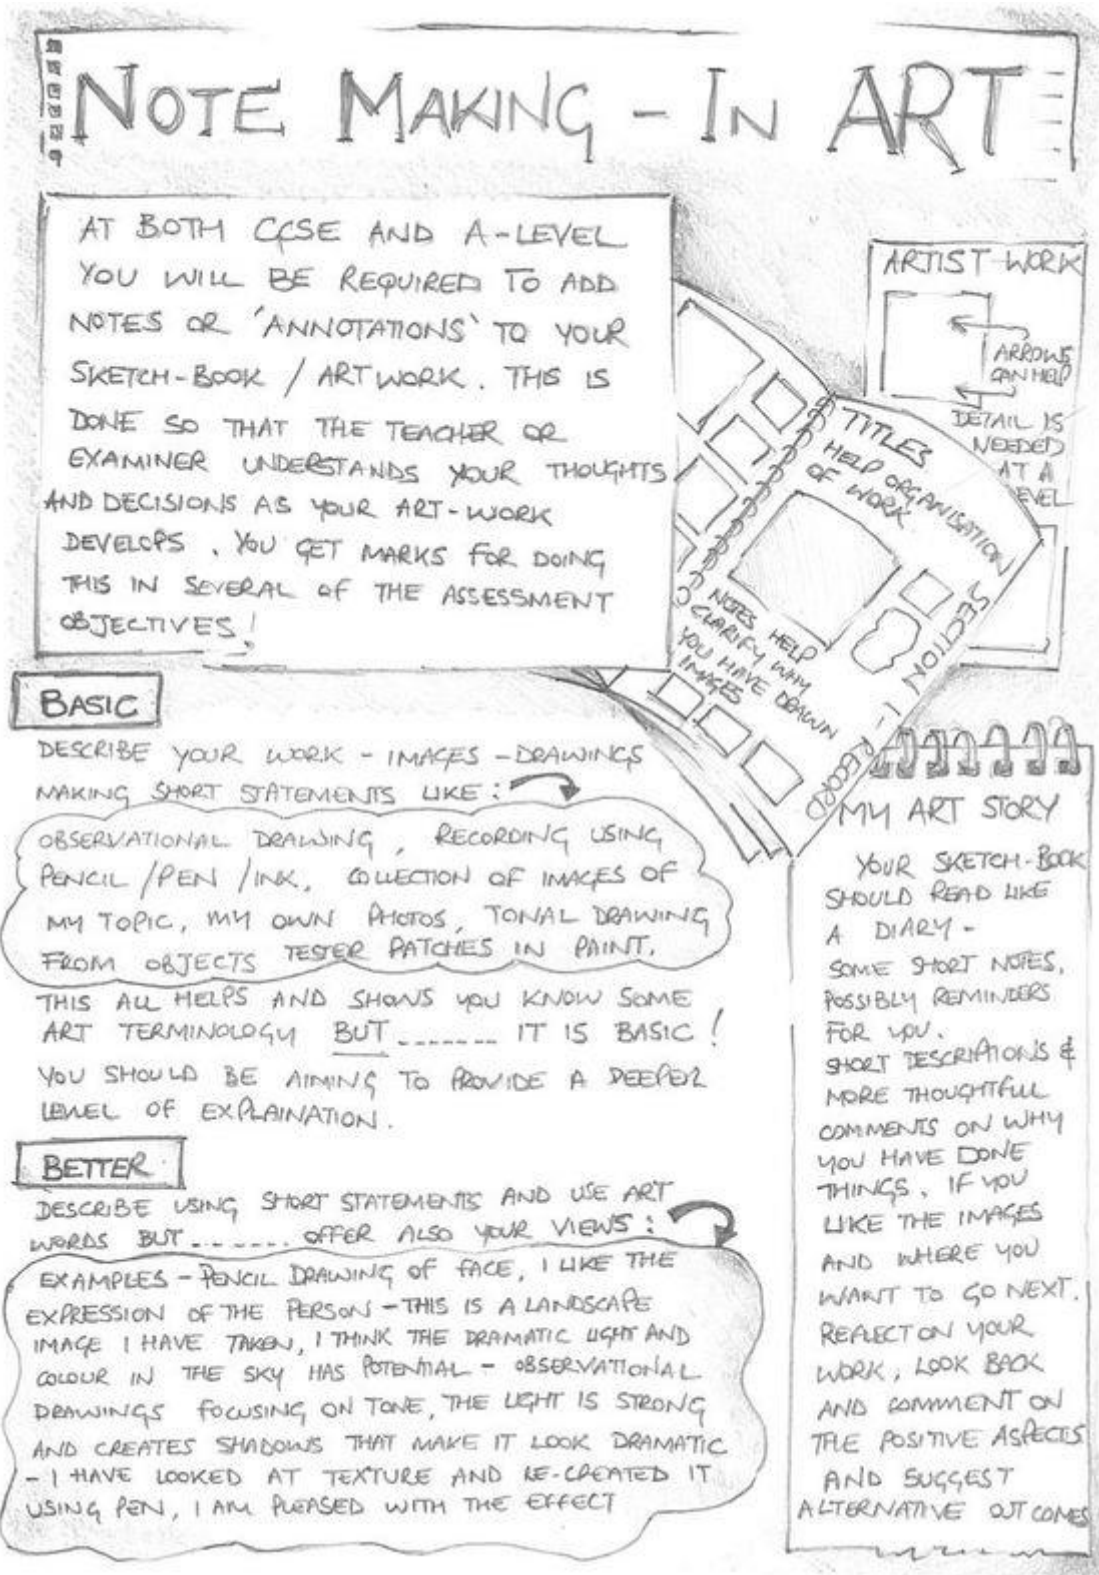 NOTE MAKING - IN ART
AT BOTH GCSE AND A-LEVEL
YOU WILL BE REQUIRED TO ADD
NOTES OR 'ANNOTATIONS' TO YOUR
SKETCH-BOOK / ARTWORK. THIS IS
DONE SO THAT THE TEACHER OR
EXAMINER UNDERSTANDS YOUR THOUGHTS
AND DECISIONS AS YOUR ART-WORK
DEVELOPS. YOU GET MARKS FOR DOING
THIS IN SEVERAL OF THE ASSESSMENT
OBJECTIVES!
ARTIST WORK
ARROWS
CAN HELP
DETAIL IS
NEEDED
AT A
EVEL
TITLES
HELP ORGANISATION
OF WORK
NOTES HELP
CLARIFY WHY
YOU HAVE DRAWN
IMAGES
SECTION 1 - RECORD
BASIC
DESCRIBE YOUR WORK - IMAGES - DRAWINGS
MAKING SHORT STATEMENTS LIKE:
OBSERVATIONAL DRAWING, RECORDING USING
PENCIL/PEN/INK, COLLECTION OF IMAGES OF
MY TOPIC, MY OWN PHOTOS, TONAL DRAWING
FROM OBJECTS TESTER PATCHES IN PAINT.
THIS ALL HELPS AND SHOWS YOU KNOW SOME
ART TERMINOLOGY BUT ....... IT IS BASIC!
YOU SHOULD BE AIMING TO PROVIDE A DEEPER
LEVEL OF EXPLAINATION.
BETTER
DESCRIBE USING SHORT STATEMENTS AND USE ART
WORDS BUT ....... OFFER ALSO YOUR VIEWS:
EXAMPLES - PENCIL DRAWING OF FACE, I LIKE THE
EXPRESSION OF THE PERSON - THIS IS A LANDSCAPE
IMAGE I HAVE TAKEN, I THINK THE DRAMATIC LIGHT AND
COLOUR IN THE SKY HAS POTENTIAL - OBSERVATIONAL
DRAWINGS FOCUSING ON TONE, THE LIGHT IS STRONG
AND CREATES SHADOWS THAT MAKE IT LOOK DRAMATIC
- I HAVE LOOKED AT TEXTURE AND RE-CREATED IT
USING PEN, I AM PLEASED WITH THE EFFECT
MY ART STORY
YOUR SKETCH-BOOK
SHOULD READ LIKE
A DIARY -
SOME SHORT NOTES,
POSSIBLY REMINDERS
FOR YOU.
SHORT DESCRIPTIONS &
MORE THOUGHTFULL
COMMENTS ON WHY
YOU HAVE DONE
THINGS. IF YOU
LIKE THE IMAGES
AND WHERE YOU
WANT TO GO NEXT.
REFLECT ON YOUR
WORK, LOOK BACK
AND COMMENT ON
THE POSITIVE ASPECTS
AND SUGGEST
ALTERNATIVE OUTCOMES